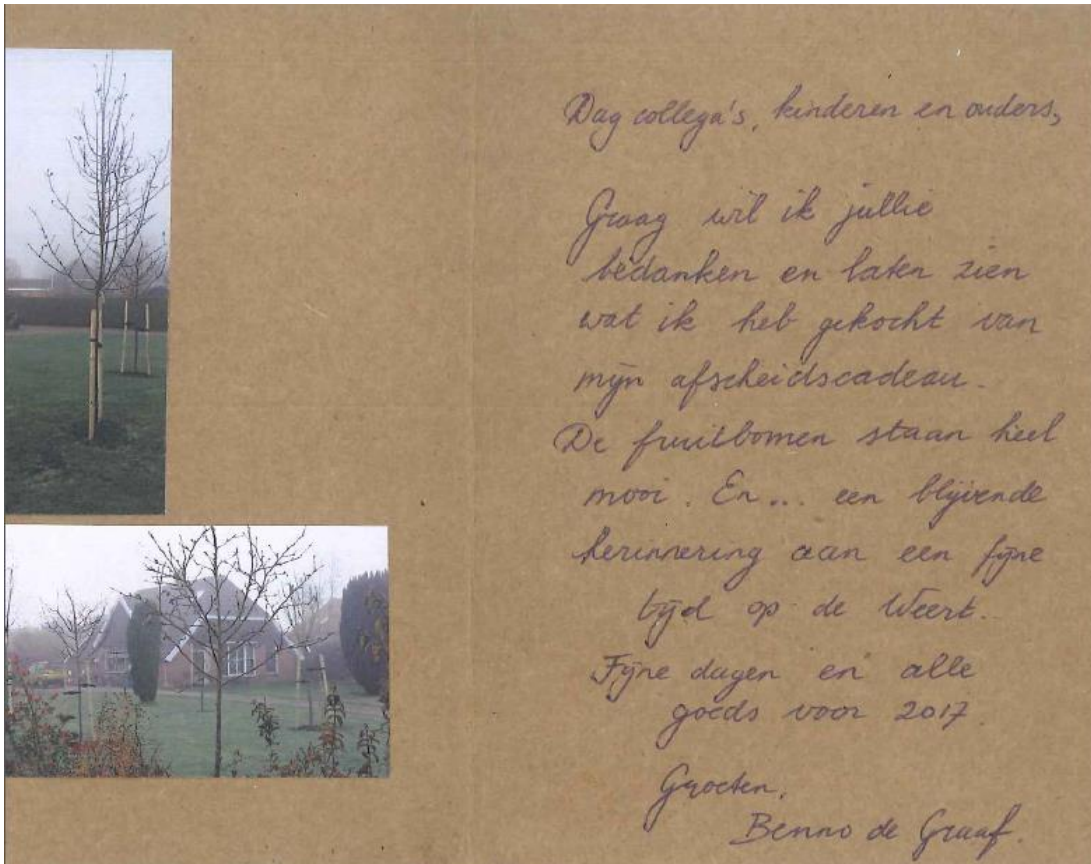 Dag collega's, kinderen en ouders,
Graag wil ik jullie
bedanken en laten zien
wat ik heb gekocht van
mijn afscheidscadeau.
De fruitbomen staan heel
mooi. En... een blijvende
herinnering aan een fijne
tijd op de Weert.
Fijne dagen en alle
goeds voor 2017.
Groeten,
Benno de Graaf.